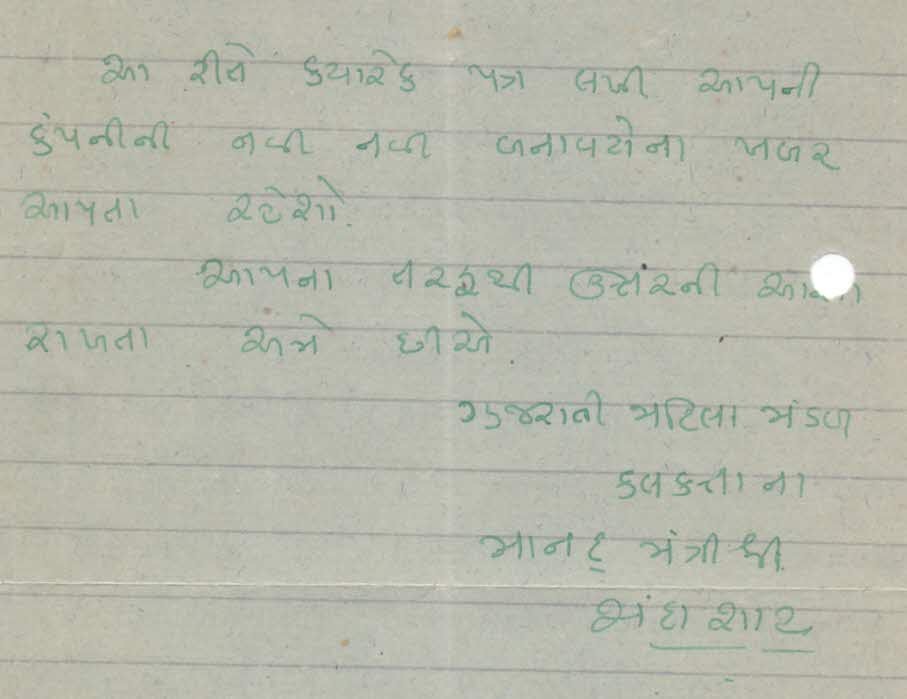 આ રીતે ક્યારેક પત્ર લખી આપની
કંપનીની નવી નવી બનાવટોના ખબર
આપતા રહેશો.
આપના તરફથી ઉત્તરની
રાખતા અમે છીએ
ગુજરાતી મહિલા મંડળ
કલકત્તા ના
માનદ્ મંત્રીશ્રી.
શાહ